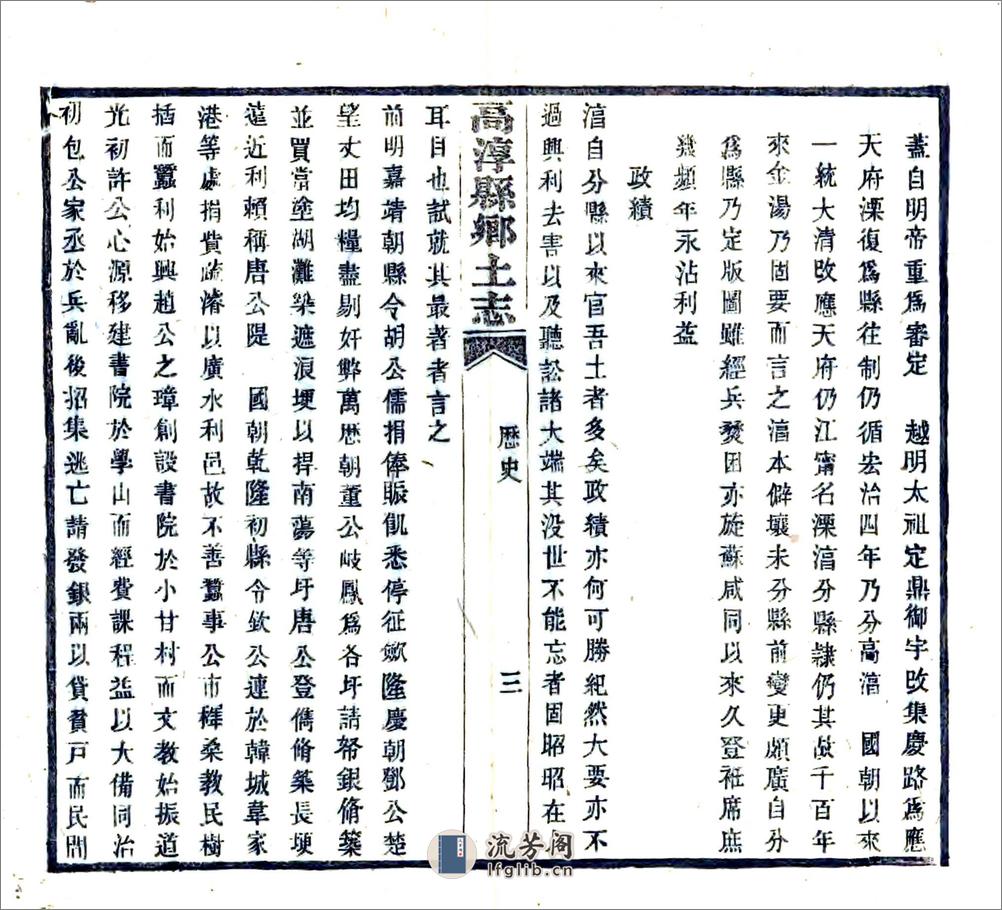 蓋自明帝重爲審定　越明太祖定鼎御宇改集慶路爲應
天府溧復爲縣往制仍循宏治四年乃分高湻　國朝以來
一統大清改應天府仍江甯名溧湻分縣隸仍其故千百年
來金湯乃固要而言之湻本僻壤未分縣前變更頗廣自分
爲縣乃定版圖雖經兵燹困亦旋蘇咸同以來久登袵席庶
幾頻年永沾利益
政績
湻自分縣以來官吾土者多矣政績亦何可勝紀然大要亦不
過興利去害以及聽訟諸大端其没世不能忘者固昭昭在
高淳縣鄉土志
歷史
三
耳目也試就其最著者言之
前明嘉靖朝縣令胡公儒捐俸賑飢悉停征歛隆慶朝鄧公楚
望丈田均糧盡剔奸弊萬歷朝董公岐鳳爲各圩請帑銀脩築
並買當塗湖灘築遮浪埂以捍南蕩等圩唐公登儁脩築長埂
遠近利賴稱唐公隄　國朝乾隆初縣令欽公連於韓城韋家
港等處捐貲疏濬以廣水利邑故不善蠶事公市穉桑教民樹
插而蠶利始興趙公之璋創設書院於小甘村而文教始振道
光初許公心源移建書院於學山而經費課程益以大備同治
初包公家丞於兵亂後招集逃亡請發銀兩以貸貧戸而民間
流芳阁
lfglib.cn